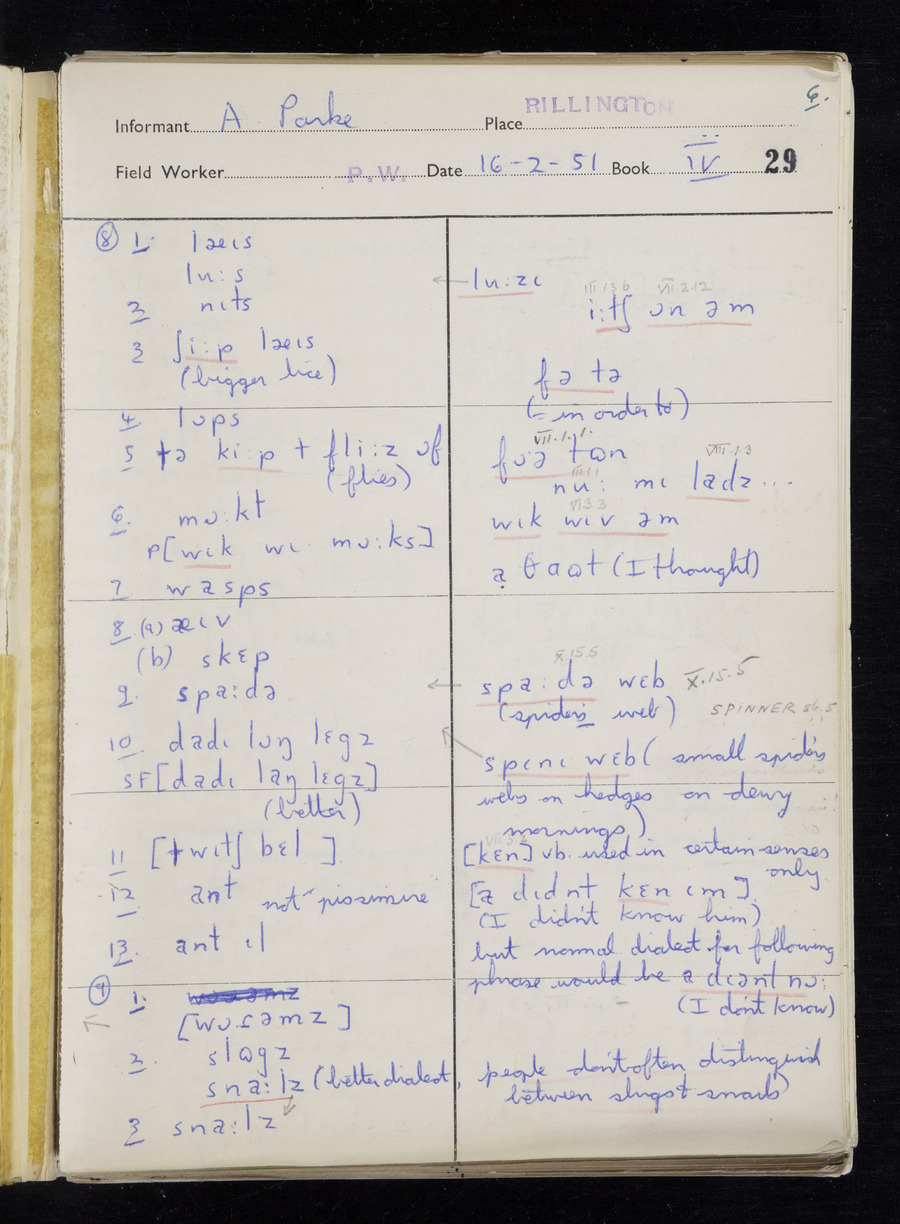 6.
Informant A Parke Place RILLINGTON
Field Worker P.W. Date 16-2-51 Book IV 29
⑧ 1. læɪs
lu:s
2 nɪts
3 ʃi:p læɪs
(bigger lice)
4. lɒps
5 tə ki:p t fli:z ɒf
(flies)
6. mʊ:kt
P[wɪk wɪ mʊ:ks]
7 wasps
8 (a) æɪv
(b) skɛp
9. spa:də
10. dadɪ lɒŋ lɛgz
SF[dadɪ laŋ lɛgz]
(better)
11 [twɪtʃ bɛl]
12 ant not "pissimire
13. ant ɪl
⑨ 1.
2. slʊgz
sna:lz (better dialect, people don't often distinguish
between slugs & snails)
3 sna:lz
← lu:zɪ
III.13.6 VII.2.12
i:tʃ ɒn əm
fə tə
(= in order to)
VII.1.1.
VIII.1.3
III.1.1
nu: mɪ ladz...
VI.3.3
wɪk wɪv əm
a θaʊt (I thought)
X.15.5
← spa:də wɛb X.15.5
(spider's web) SPINNER
spɪnɪ wɛb (small spider's
webs on hedges on dewy
mornings)
[kɛn] vb. used in certain senses
only
[a dɪdnt kɛn ɪm]
(I didn't know him)
but normal dialect for following
phrase would be a dɪənt nɒ:
(I don't know)